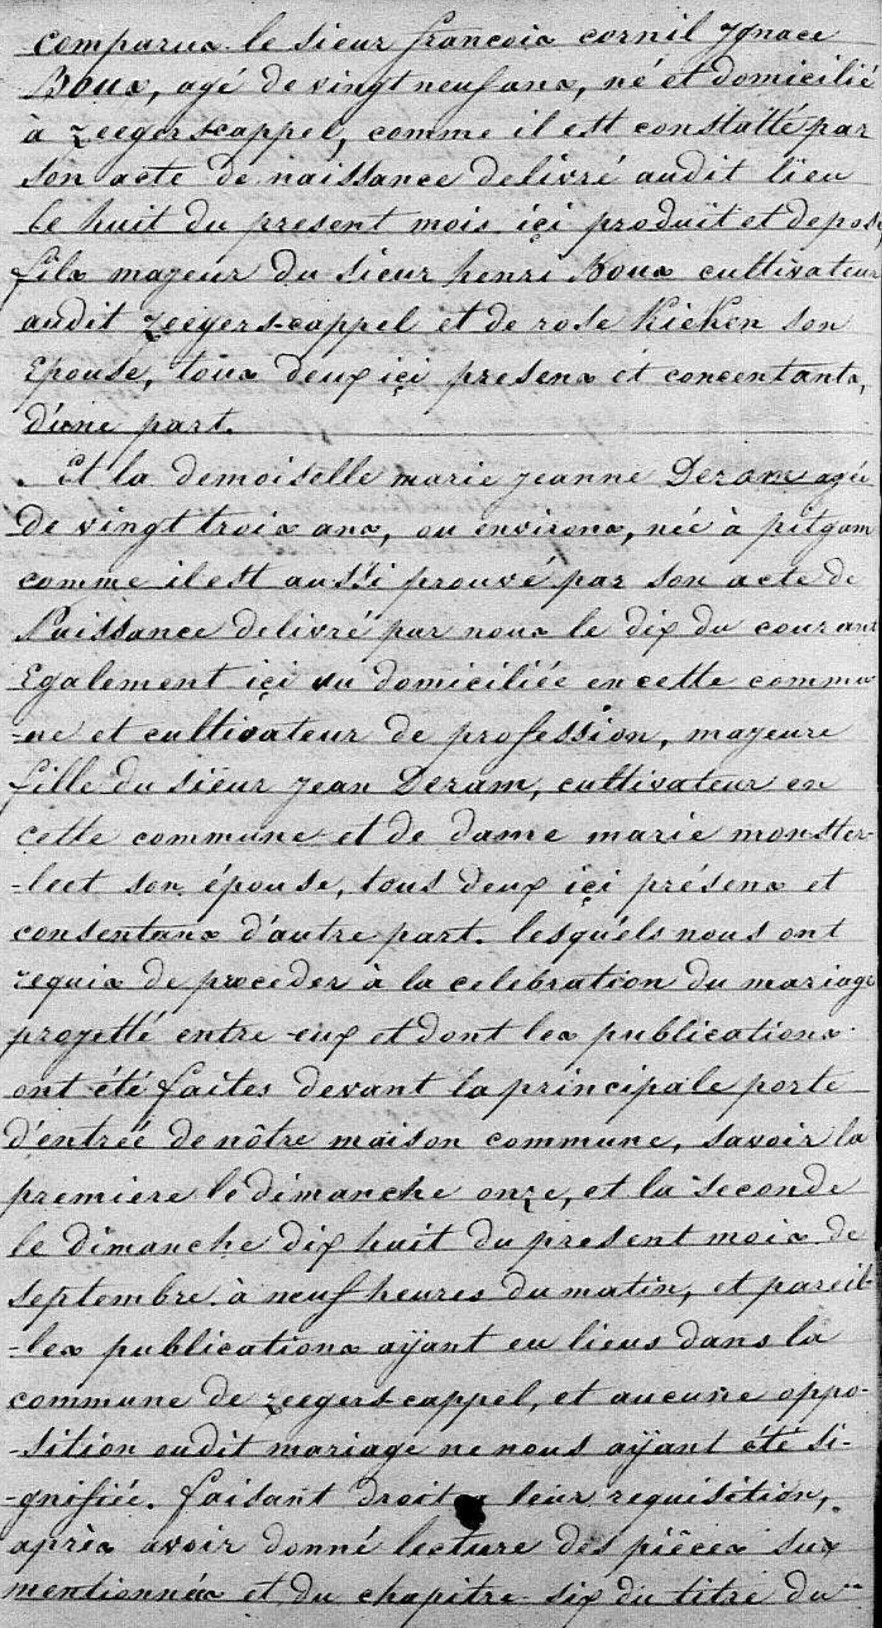 comparus le sieur françois cornil ygnace
Bous, agé de vingt neuf ans, né et domicilié
à zeegers-cappel, comme il est constatté par
son acte de naissance delivré audit lieu
le huit du present mois içi produit et deposé,
fils mayeur du sieur henri Bous cultivateur
audit zeegers-cappel et de rose Kieken son
Epouse, tous deux içi presens et concentants,
d'une part.
Et la demoiselle marie jeanne Deram agée
de vingt trois ans, ou environs, née à pitgam
comme il est aussi prouvé par son acte de
Naissance delivré par nous le dix du courant
Egalement içi vu domiciliée en cette commu
-ne et cultivateur de profession, mayeure
fille du sieur jean Deram, cultivateur en
cette commune et de dame marie monster-
-leet son épouse, tous deux içi présens et
consentans d'autre part. lesquéls nous ont
requis de proceder à la celebration du mariage
proyetté entre eux et dont les publications
ont été faites devant la principale porte
d'entreé de nôtre maison commune, savoir la
premiere le dimanche onze, et la seconde
le dimanche dix huit du present mois de
septembre à neuf heures du matin, et pareil-
-les publications aÿant eu lieus dans la
commune de zeegers-cappel, et aucune oppo-
-sition audit mariage ne nous aÿant été si-
-gnifiée. faisant droit a leur requisition,
après avoir donné lecture des piêces sus
mentionnées et du chapitre six du titre du